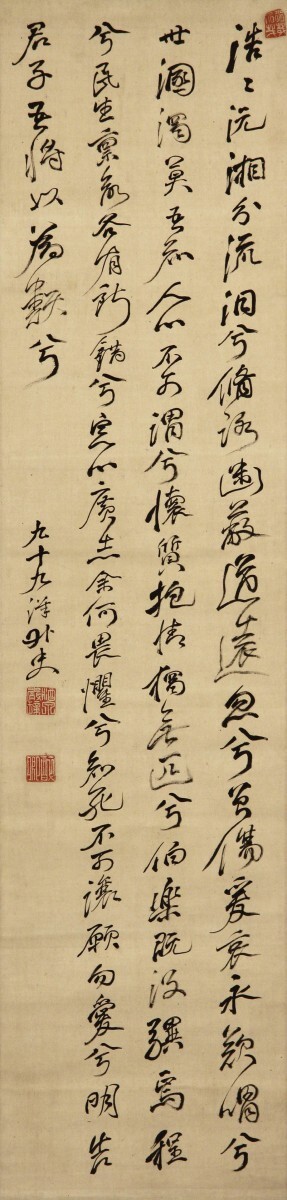 浩〻沅湘分流汨兮脩路幽蔽道遠忽兮曽傷爰哀永歎喟兮
世溷濁莫吾知人心不可謂兮懐質抱情獨無匹兮伯樂既没驥焉程
兮民生禀命各有所錯兮定心廣志余何畏懼兮知死不可讓願勿愛兮明告
君子吾将以為類兮
九十九洋外史